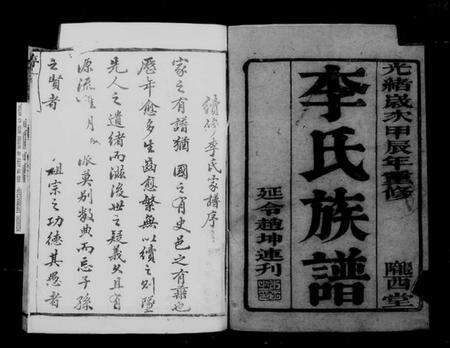 光緒歲次甲辰年重修
隴西堂
李氏族譜
延令趙坤連刊
續修李氏家譜序
家之有譜猶國之有史邑之有乘也
歷年愈多生齒愈繁無以續之則墜
先人之遺緒而滋後世之疑義久且有
源流 月 派莫別數典而忘子孫
之賢者 祖宗之功德其愚者